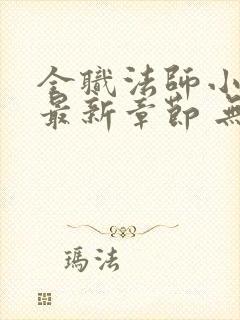 全職法師小
最新章節 無
瑪法